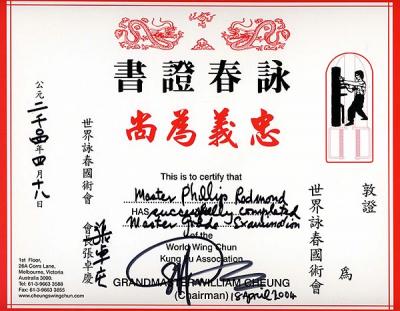 詠春證書
忠義為尚
敦證 為
世界詠春國術會
This is to certify that
Master Phillip Redmond
HAS successfully completed
Master Grade
of the
World Wing Chun
Kung Fu Association
GRANDMASTER WILLIAM CHEUNG
(Chairman) 18 April 2004
世界詠春國術會
會長張卓慶
公元二千〇四年四月十八日
1st Floor,
26A Corrs Lane,
Melbourne, Victoria
Australia 3000.
Tel: 61-3-9663 3588
Fax: 61-3-9663 3855
www.cheungswingchun.com